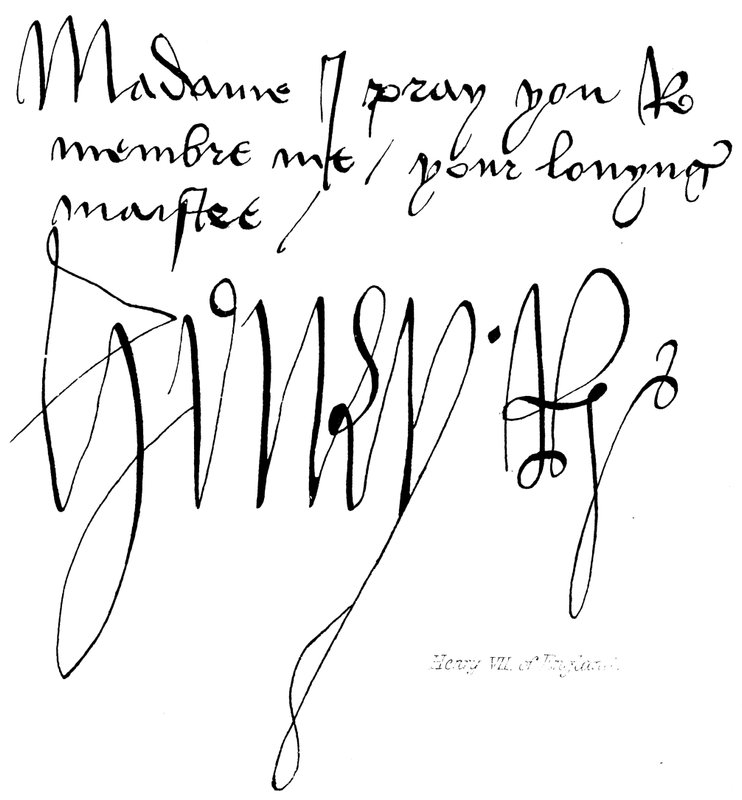 Madame I pray you Re
membre me / your lovyng
maistre /
Henry . R
Henry VII. of England.